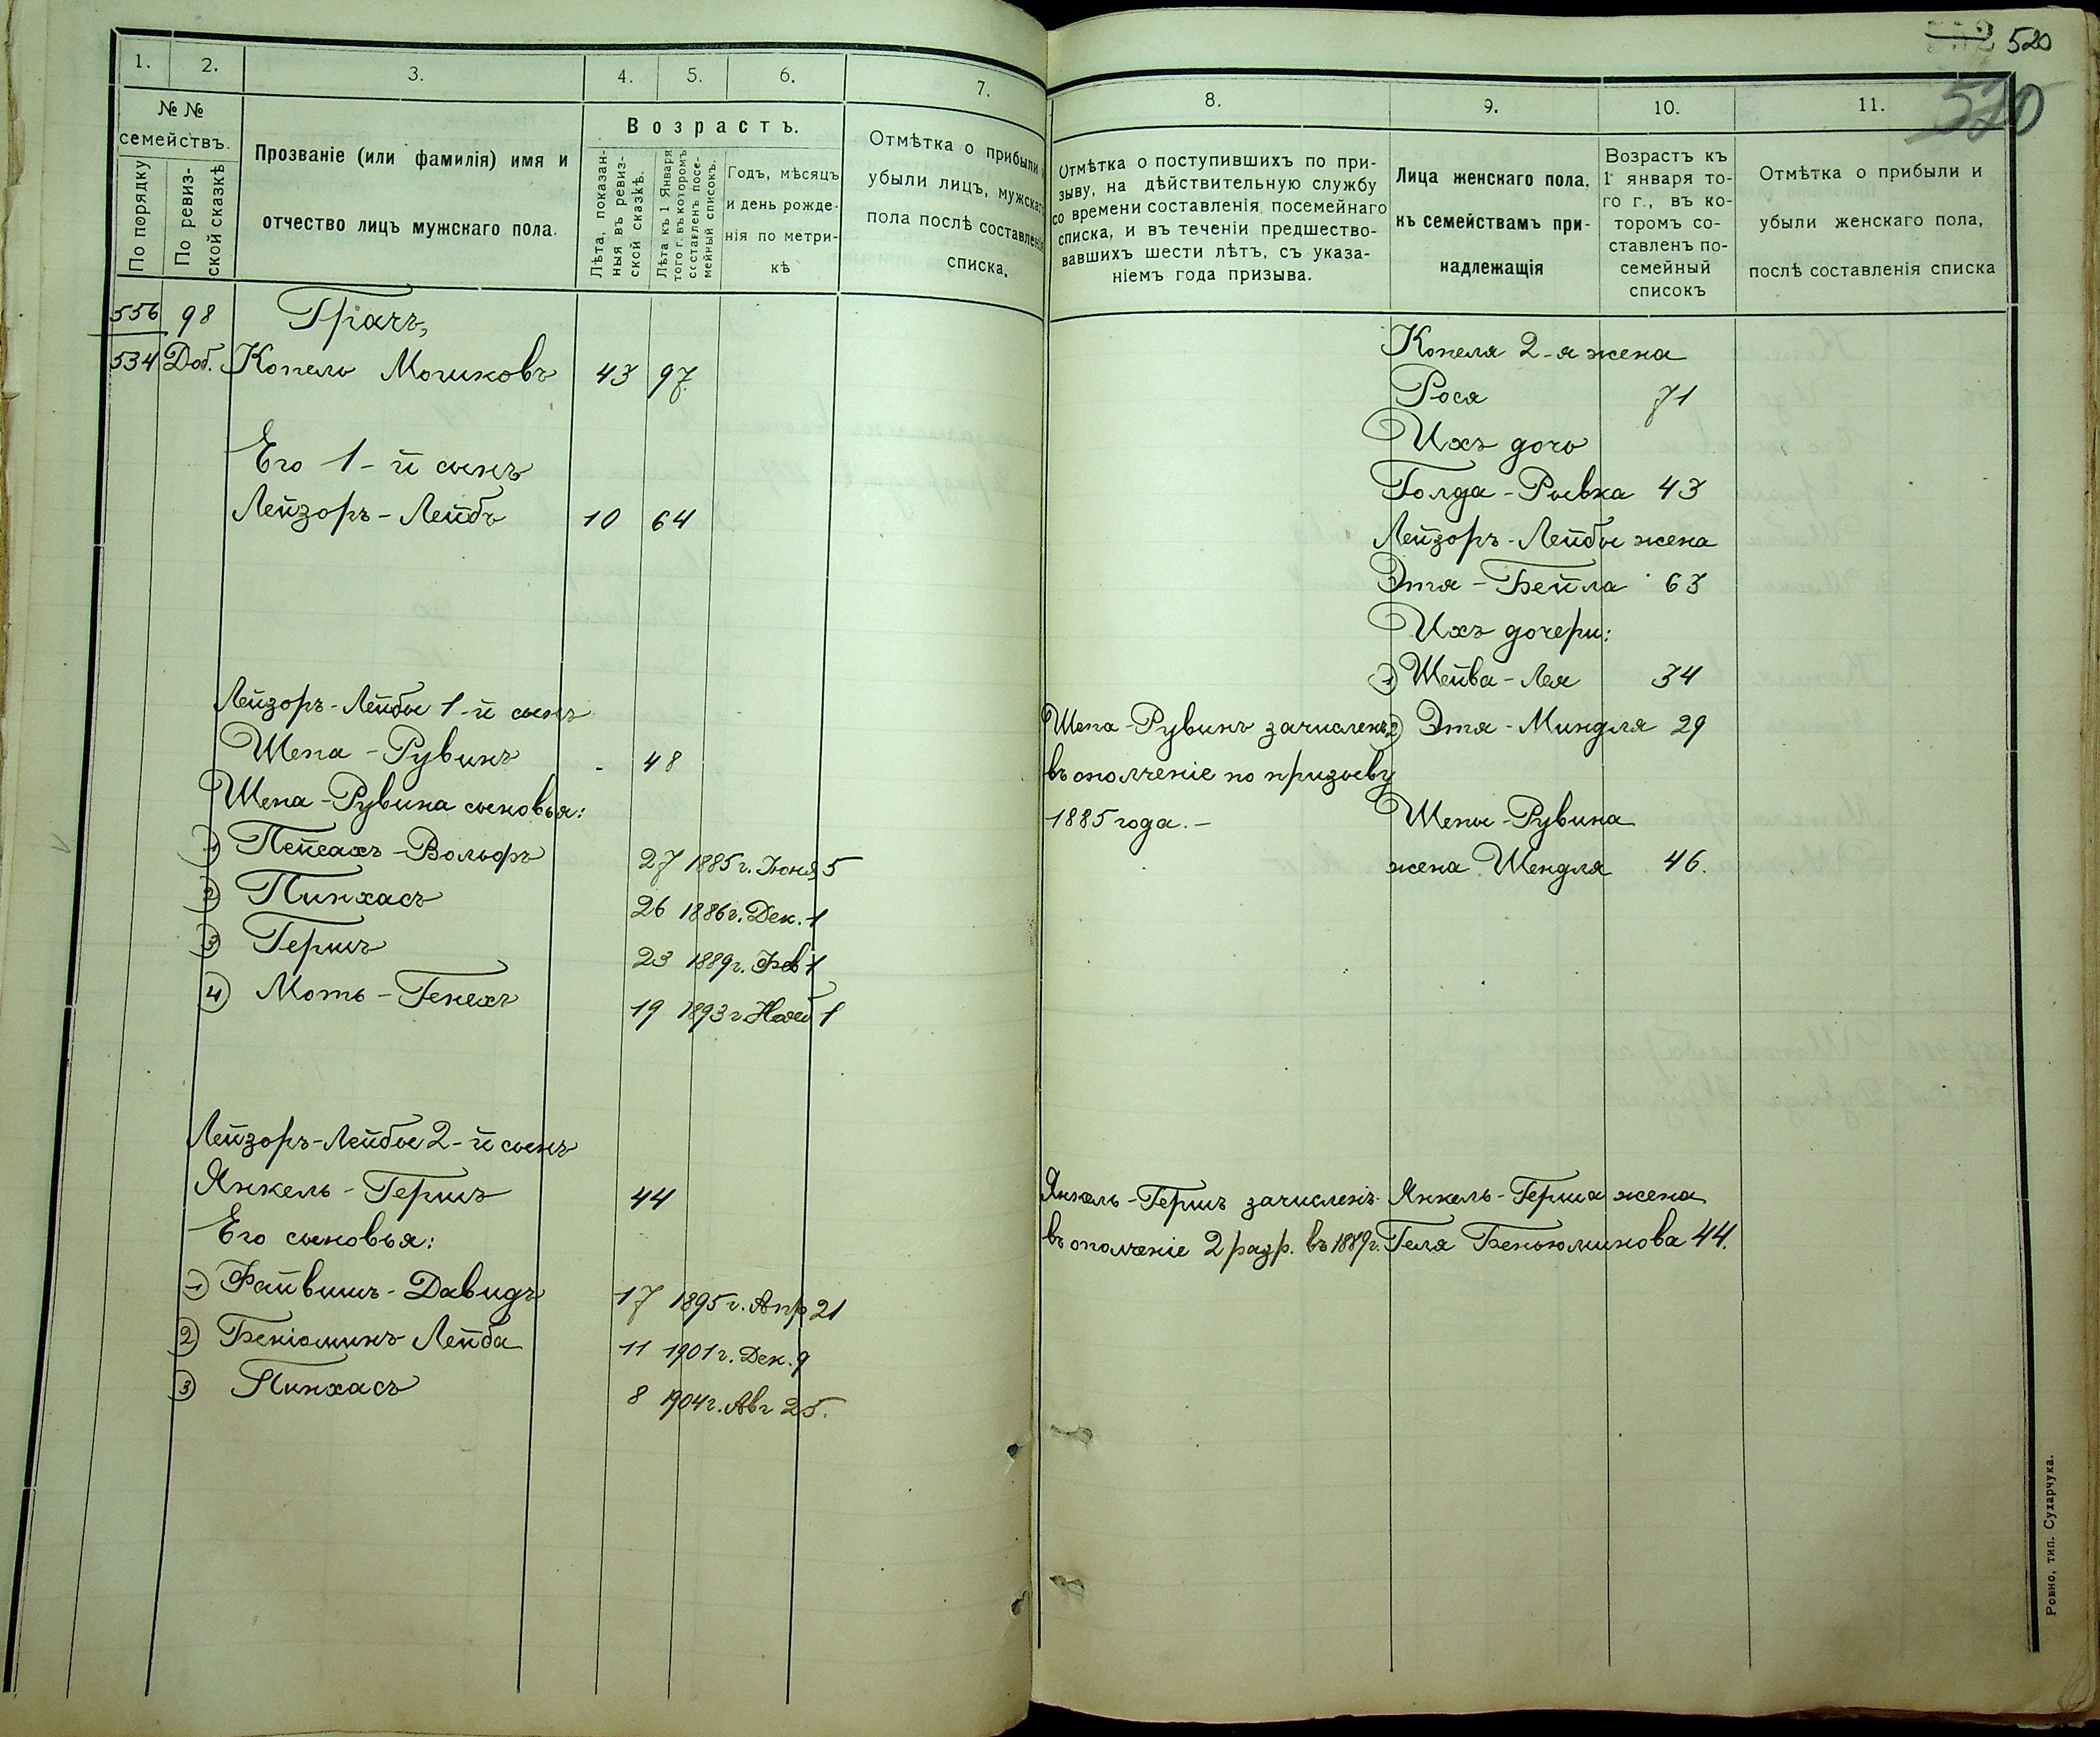 520
520
1.
2.
3.
4.
5.
6.
7.
№ №
семействъ.
По порядку
По ревиз-
ской сказкѣ
Прозваніе (или фамилія) имя и
отчество лицъ мужскаго пола.
Возрастъ.
Лѣта, показан-
ныя въ ревиз-
ской сказкѣ.
Лѣта къ 1 Января
того г. въ которомъ
составленъ посе-
мейный списокъ.
Годъ, мѣсяцъ
и день рожде-
нія по метри-
кѣ
Отмѣтка о прибыли
убыли лицъ, мужскаго
пола послѣ составленія
списка.
556 98 Грачъ,
534 Доб. Копель Мошковъ 43 97
Его 1-й сынъ
Лейзоръ-Лейбъ 10 64
Лейзоръ-Лейбы 1-й сынъ
Шепа-Рувинъ - 48
Шепа-Рувина сыновья:
1) Пейсахъ-Вольфъ 27 1885 г. Іюня 5
2) Пинхасъ 26 1886 г. Дек. 1
3) Гершъ 23 1889 г. Фев 1
4) Моть-Генехъ 19 1893 г. Нояб 1
Лейзоръ-Лейбы 2-й сынъ
Янкель-Гершъ 44
Его сыновья:
1) Файвишъ-Давидъ 17 1895 г. Апр 21
2) Беніоминъ-Лейба 11 1901 г. Дек. 9
3) Пинхасъ 8 1904 г. Авг 25.
8.
9.
10.
11.
Отмѣтка о поступившихъ по при-
зыву, на дѣйствительную службу
со времени составленія посемейнаго
списка, и въ теченіи предшество-
вавшихъ шести лѣтъ, съ указа-
ніемъ года призыва.
Лица женскаго пола,
къ семействамъ при-
надлежащія
Возрастъ къ
1 января то-
го г., въ ко-
торомъ со-
ставленъ по-
семейный
списокъ
Отмѣтка о прибыли и
убыли женскаго пола,
послѣ составленія списка
Копеля 2-я жена
Рося 71
Ихъ дочь
Голда-Рывка 43
Лейзоръ-Лейбы жена
Этя-Бейла 63
Ихъ дочери:
1) Шейва-Лея 34
Шепа-Рувинъ зачисленъ 2) Этя-Миндля 29
въ ополченіе по призыву
1885 года.- Шепы-Рувина
жена Шендля 46.
Янкель-Гершъ зачисленъ Янкель-Герша жена
въ ополченіе 2 разр. въ 1889 г. Геля Беньюминова 44.
Ровно, тип. Сухарчука.